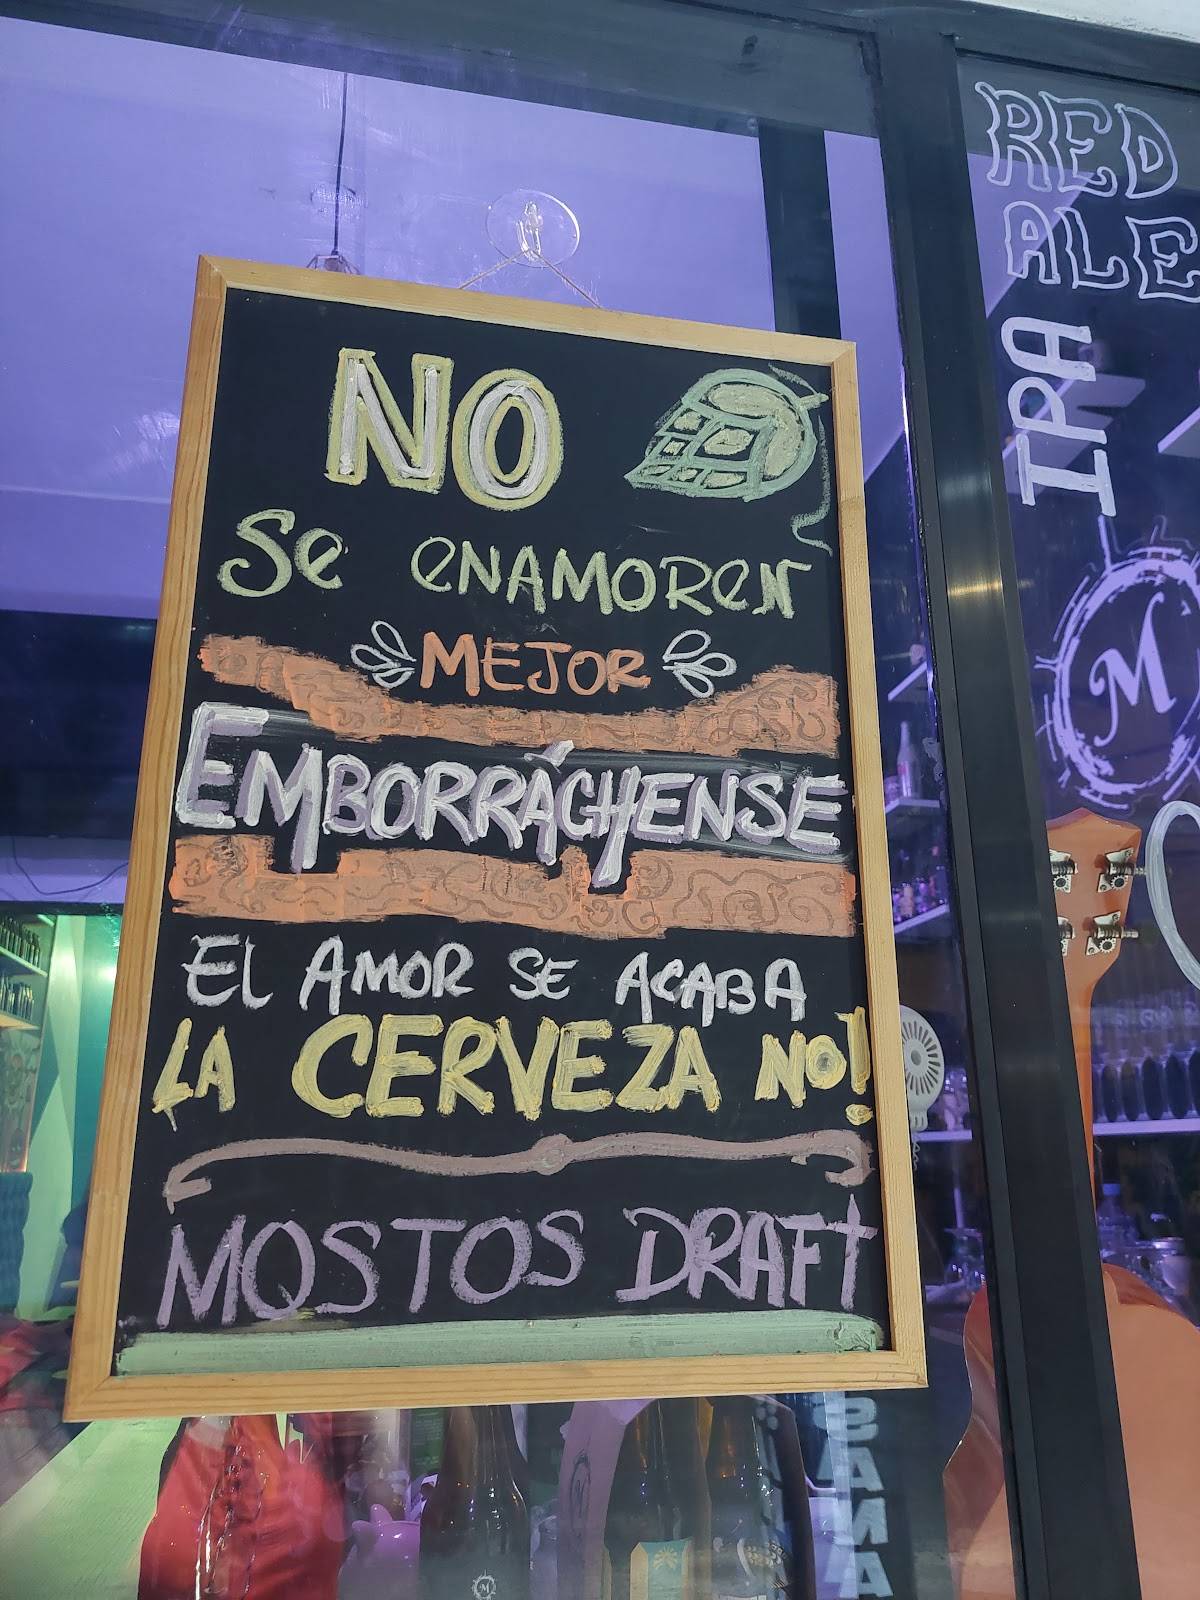 NO
Se ENAMOREN
MEJOR
EMBORRÁCHENSE
El AMOR SE ACABA
LA CERVEZA NO!
MOSTOS DRAFT
RED
ALE
IPA
M
M